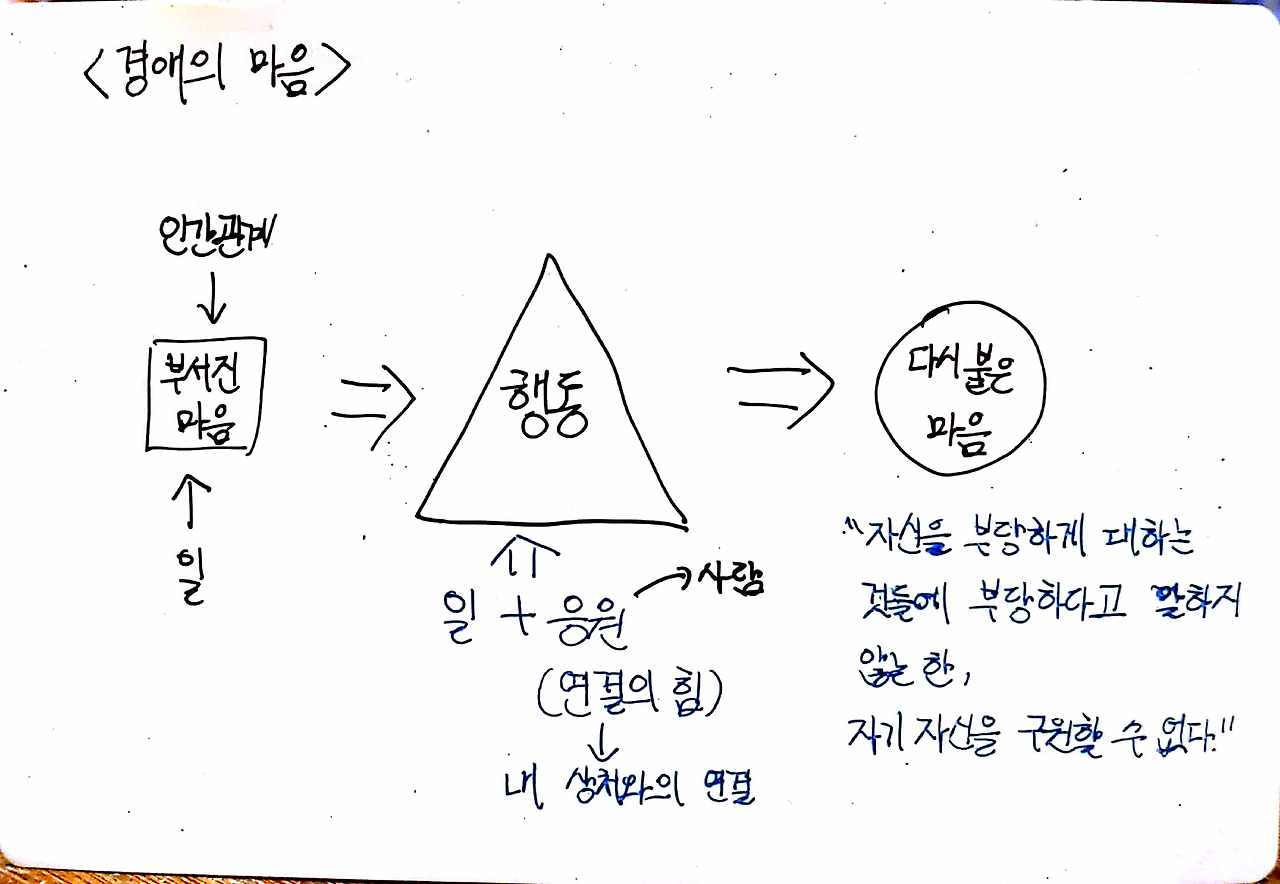 <경애의 마음>
인간관계
↓
부서진
마음
↑
일
⇒
행동
⇒
다시 붙은
마음
⇑
일 + 응원 → 사람
(연결의 힘)
↓
내 상처와의 연결
"자신을 부당하게 대하는
것들에 부당하다고 말하지
않는 한,
자기 자신을 구원할 수 없다."